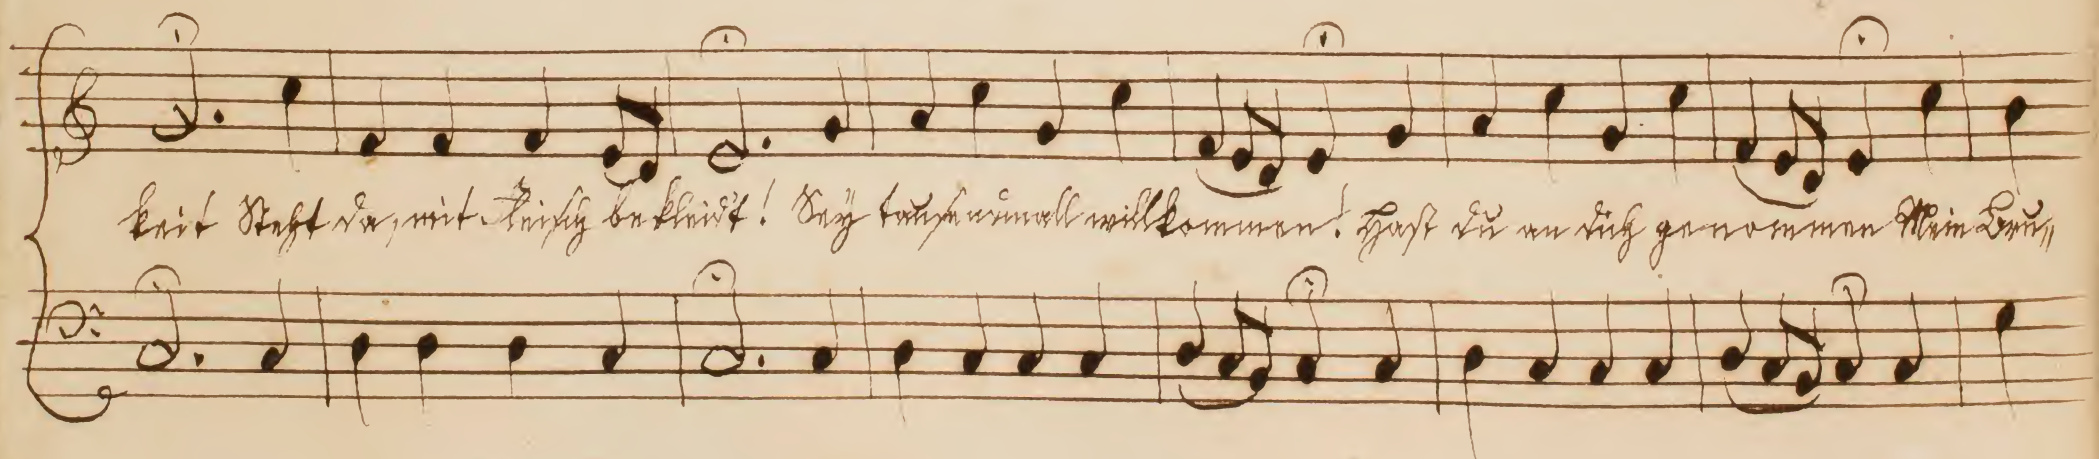 keit Steht da, mit Fleisch bekleidt! Sey tausendmall willkommen! Hast du an dich genommen Mein Bru„